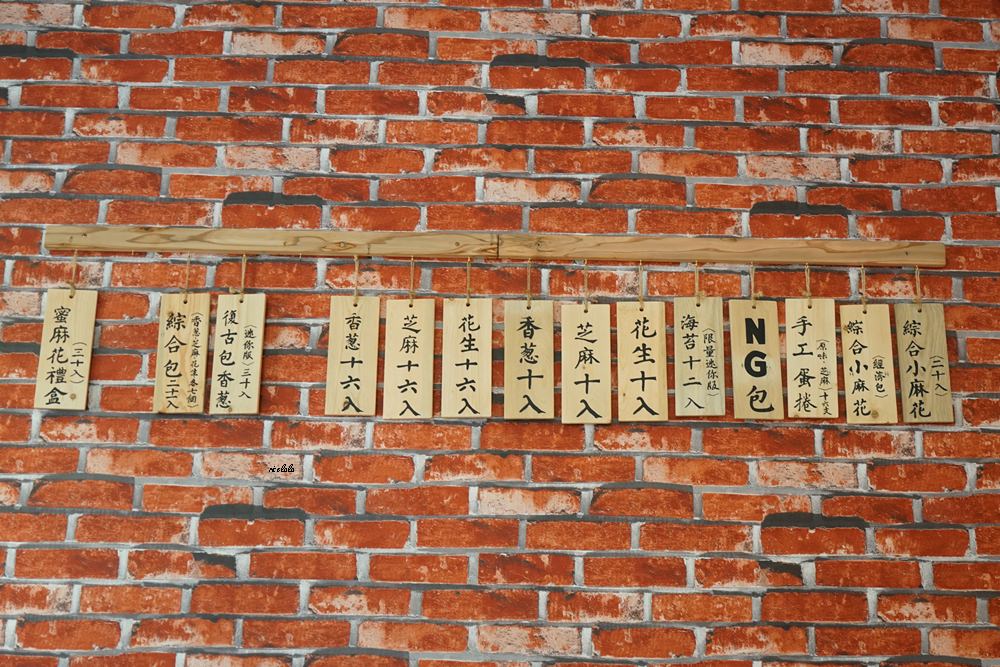 綜合小麻花
(二十入)
綜合小麻花
(經濟包)
手工蛋捲
(原味·芝麻)十六支
NG包
海苔十二入
(限量迷你版)
花生十入
芝麻十入
香蔥十入
花生十六入
芝麻十六入
香蔥十六入
復古包香蔥
迷你版·三十入
綜合包二十一入
(香蔥芝麻花生各七個)
蜜麻花禮盒
(三十入)
nicolola